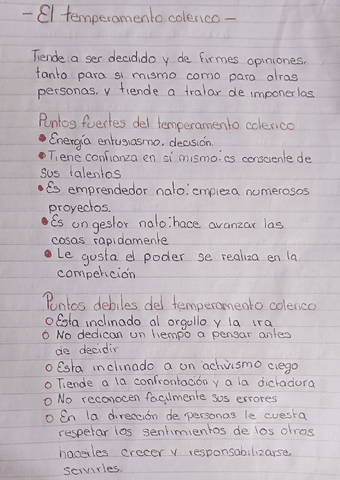 - El temperamento colerico -
Tiende a ser decidido y de firmes opiniones,
tanto para si mismo como para otras
personas, y tiende a tratar de imponerlas
Puntos fuertes del temperamento colerico
• Energía entusiasmo, decisión.
• Tiene confianza en sí mismo: es consciente de
sus talentos
• Es emprendedor nato: empieza numerosos
proyectos.
• Es un gestor nato: hace avanzar las
cosas rapidamente
• Le gusta el poder se realiza en la
competición
Puntos debiles del temperamento colerico
o Esta inclinado al orgullo y la ira
o No dedican un tiempo a pensar antes
de decidir
o Esta inclinado a un activismo ciego
o Tiende a la confrontación y a la dictadura
o No reconocen facilmente sus errores
o En la dirección de personas le cuesta
respetar los sentimientos de los otros
hacerles crecer y responsabilizarse
servirles.